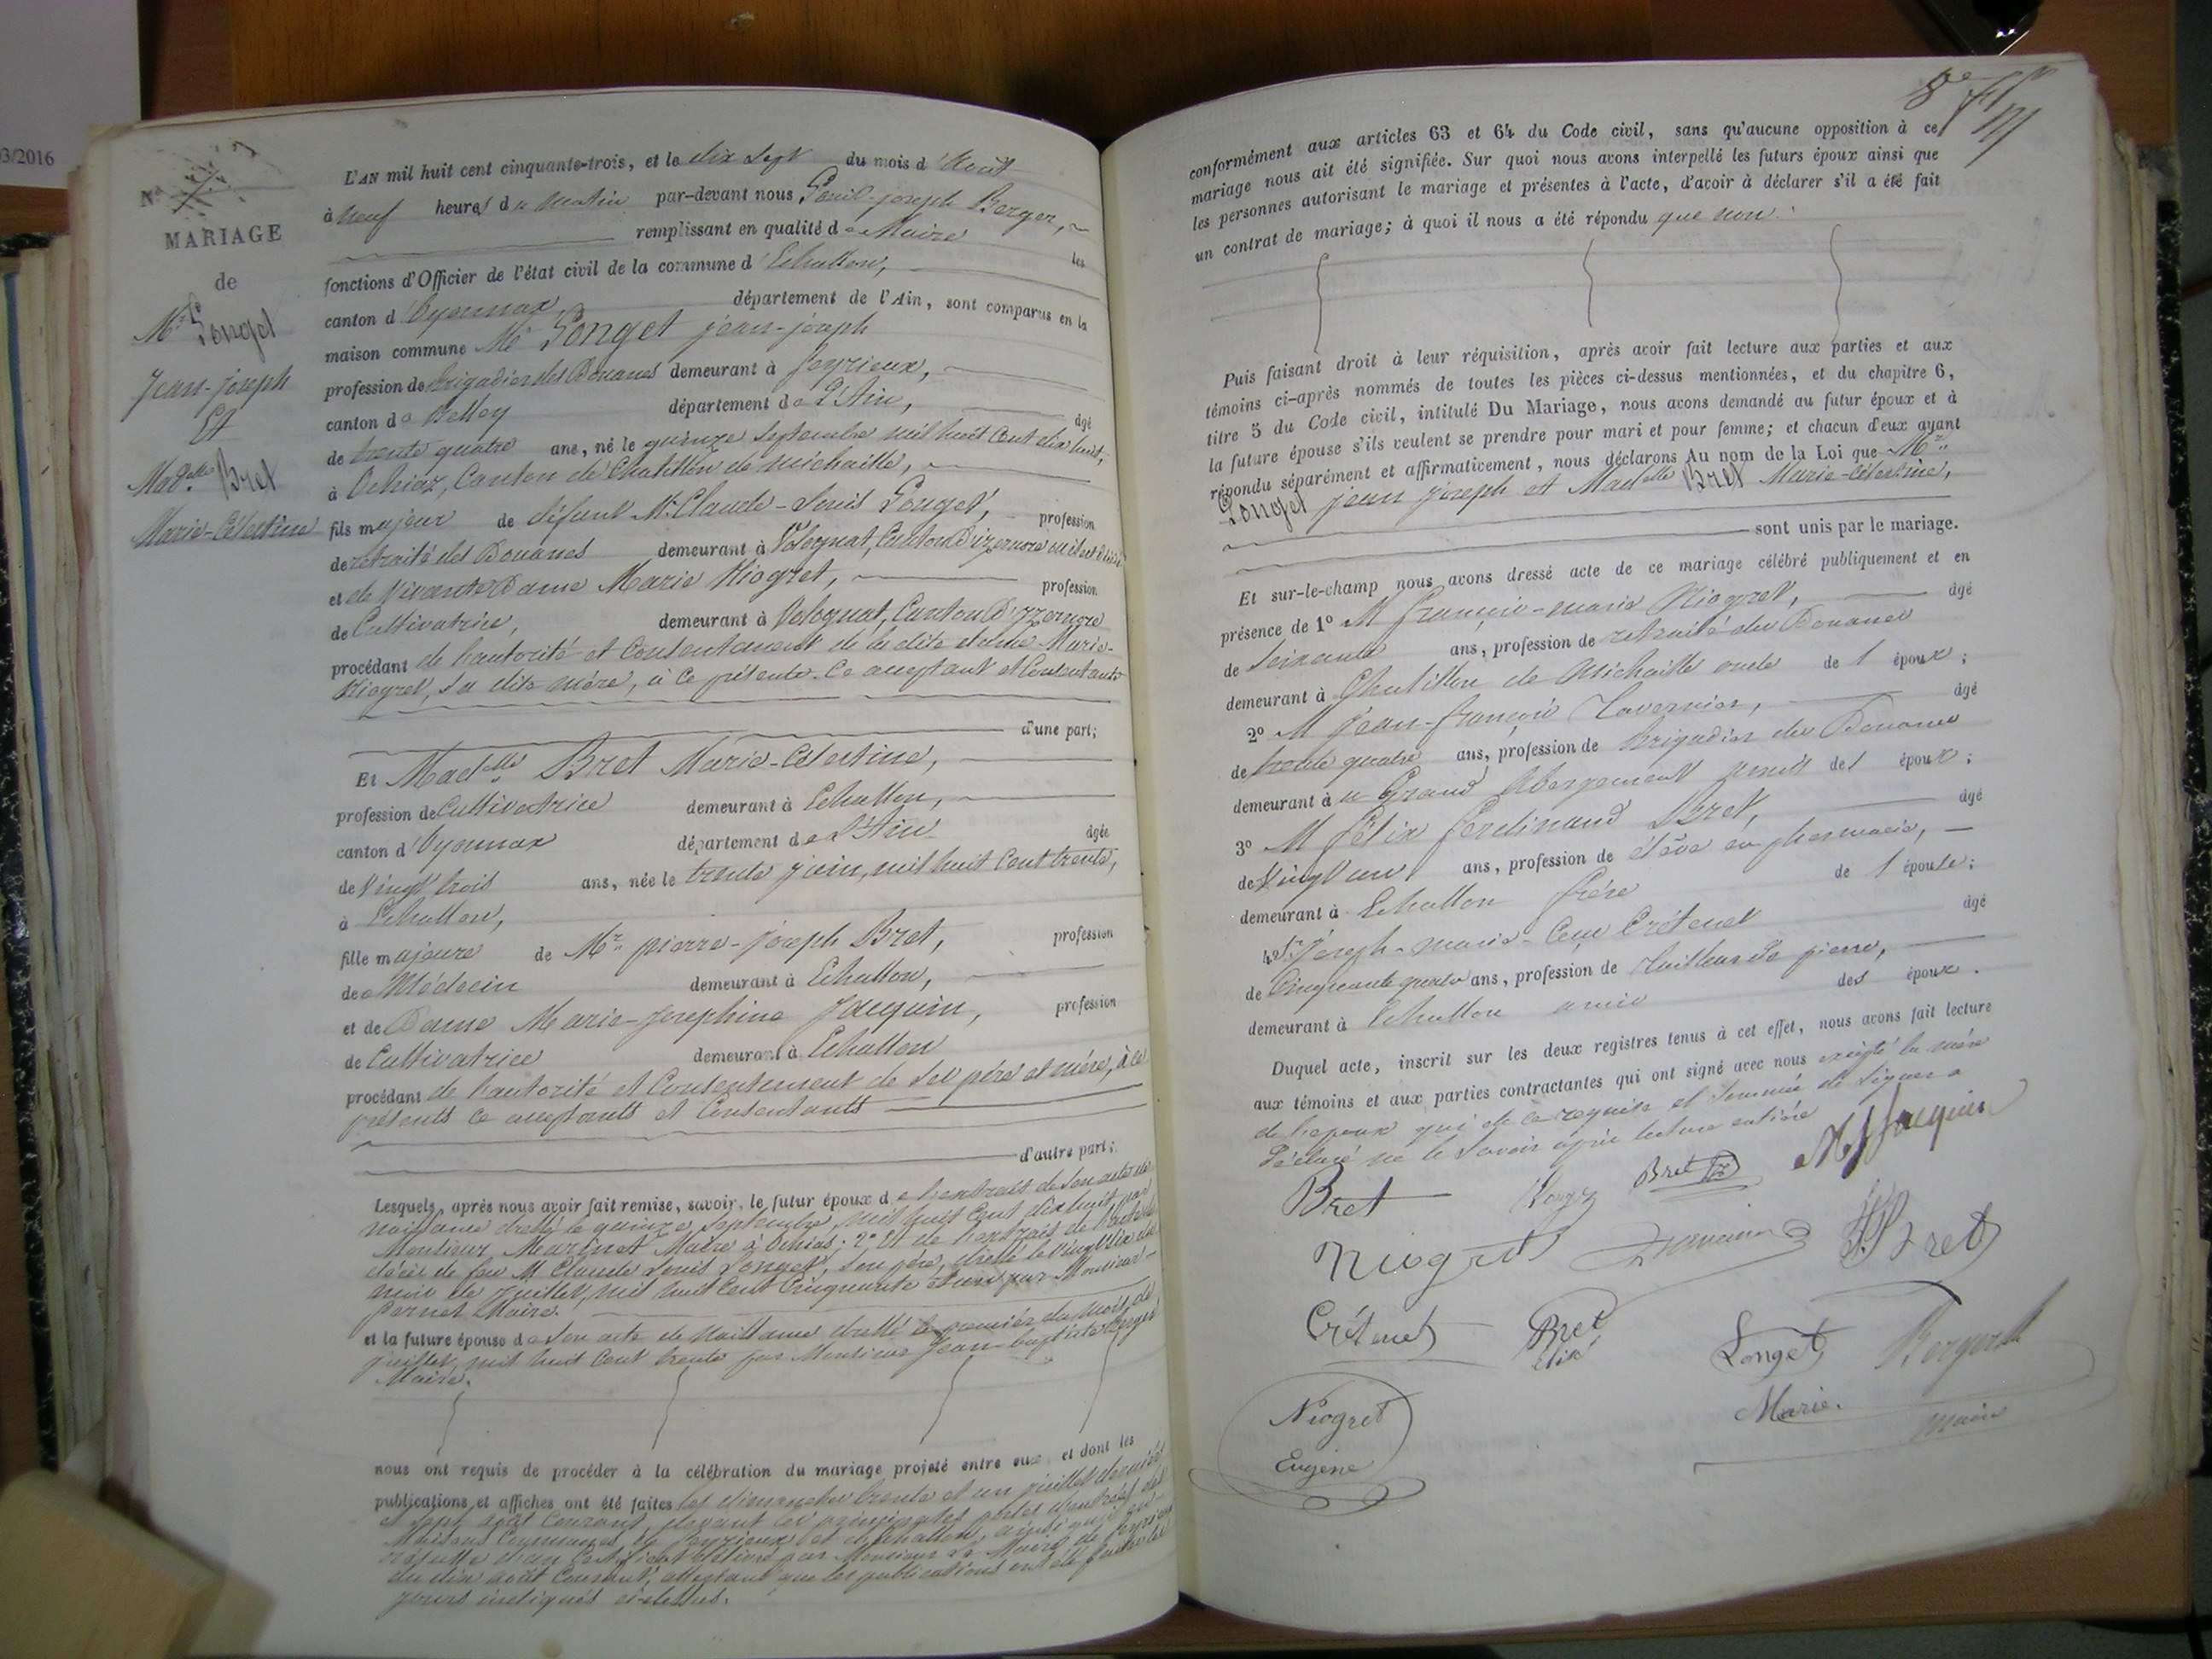 3/2016
N°
MARIAGE
de
Mr Longet
Jean-joseph
Et
Madelle Bret
Marie-Célestine
L'AN mil huit cent cinquante-trois, et le dix sept du mois d'Août
à neuf heures du matin par-devant nous Berger,
remplissant en qualité de Maire les
fonctions d'Officier de l'état civil de la commune d'Echallon,
canton d'Oyonnax département de l'Ain, sont comparus en la
maison commune Mr Longet jean-joseph
profession de brigadier des Douanes demeurant à Peyrieux,
canton de Belley département de L'Ain, âgé
de trente quatre ans, né le quinze Septembre mil huit Cent dix huit,
à Ochiaz, Canton de Chatillon de Michaille,
fils majeur de défunt Mr Claude-Louis Longet, profession
de retraité des Douanes demeurant à Volognat, Canton
et de Vivante Dame Marie Niogret, profession
de Cultivatrice, demeurant à Volognat, Canton D'izernore
procédant de l'autorité et Consentement de la dite dame Marie-
Niogret, sa dite mère, à ce présente. Ce acceptant et Consentante
d'une part;
Et Madelle Bret Marie-Célestine,
profession de Cultivatrice demeurant à Echallon,
canton d'Oyonnax département de L'Ain âgée
de Vingt trois ans, née le trente juin, mil huit Cent trente,
à Echallon,
fille majeure de Mr pierre-joseph Bret, profession
de Médecin demeurant à Echallon,
et de Dame Marie-josephine Jacquin, profession
de Cultivatrice demeurant à Echallon
procédant de l'autorité et Consentement de ses père et mère, à ce
présents ce acceptants et Consentants
d'autre part;
Lesquels, après nous avoir fait remise, savoir, le futur époux de l'extrait de son acte de
naissance dressé le quinze Septembre mil huit Cent dix huit par
Monsieur Marinet Maire à Ochiaz; 2° Et de l'extrait de l'acte de
décès de feu M Claude Louis Longet, Son père, dressé le vingt dix du
mois de Juillet, mil huit Cent Cinquante et un par Monsieur
pernet Maire.
et la future épouse de Son acte de Naissance dressé le premier du mois de
juillet, mil huit Cent trente par Monsieur Jean-baptiste
Maire.
nous ont requis de procéder à la célébration du mariage projeté entre eux, et dont les
publications et affiches ont été faites les dimanches trente et un juillet dernier
et sept août Courant, devant les principales portes d'entrées des
Maisons Communes de Peyrieux et d'Echallon, ainsi qu'il en
résulte d'un Certificat délivré par Monsieur Le Maire de Peyrieux
du dix août Courant, attestant que les publications ont été faites les
jours indiqués ci-dessus.
8e
conformément aux articles 63 et 64 du Code civil, sans qu'aucune opposition à ce
mariage nous ait été signifiée. Sur quoi nous avons interpellé les futurs époux ainsi que
les personnes autorisant le mariage et présentes à l'acte, d'avoir à déclarer s'il a été fait
un contrat de mariage; à quoi il nous a été répondu que non.
Puis faisant droit à leur réquisition, après avoir fait lecture aux parties et aux
témoins ci-après nommés de toutes les pièces ci-dessus mentionnées, et du chapitre 6,
titre 5 du Code civil, intitulé Du Mariage, nous avons demandé au futur époux et à
la future épouse s'ils veulent se prendre pour mari et pour femme; et chacun d'eux ayant
répondu séparément et affirmativement, nous déclarons Au nom de la Loi que Mr
Longet jean joseph et Madelle Bret Marie-Célestine,
sont unis par le mariage.
Et sur-le-champ nous avons dressé acte de ce mariage célébré publiquement et en
présence de 1° M françois-marie Niogret, âgé
de Soixante ans, profession de retraité des Douanes
demeurant à Chatillon de Michaille oncle de l'époux;
2° M jean-françois Tavernier, âgé
de trente quatre ans, profession de Brigadier des Douanes
demeurant à u Grand Abergement de l'époux;
3° M félix ferdinand Bret, âgé
de Vingt un ans, profession de élève en pharmacie,
demeurant à Echallon frère de l'épouse;
4° Sr Joseph-marie- Crétenet âgé
de Cinquante quatre ans, profession de tailleur de pierre,
demeurant à Echallon amis des époux.
Duquel acte, inscrit sur les deux registres tenus à cet effet, nous avons fait lecture
aux témoins et aux parties contractantes qui ont signé avec nous excepté la mère
de l'époux qui de ce requise et Sommée de Signer a
déclaré ne le Savoir après lecture entière
Bret Bret Jacquin
Niogret Bret
Crétenet Bret Longet
Niogret Marie.
Eugène maire